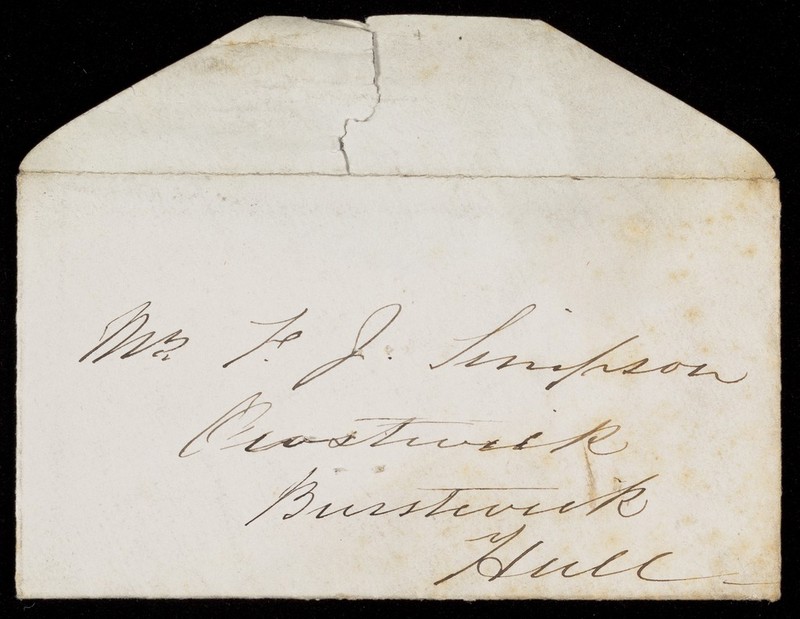 Mr F. J. Simpson
Owstwick
Burstwick
Hull